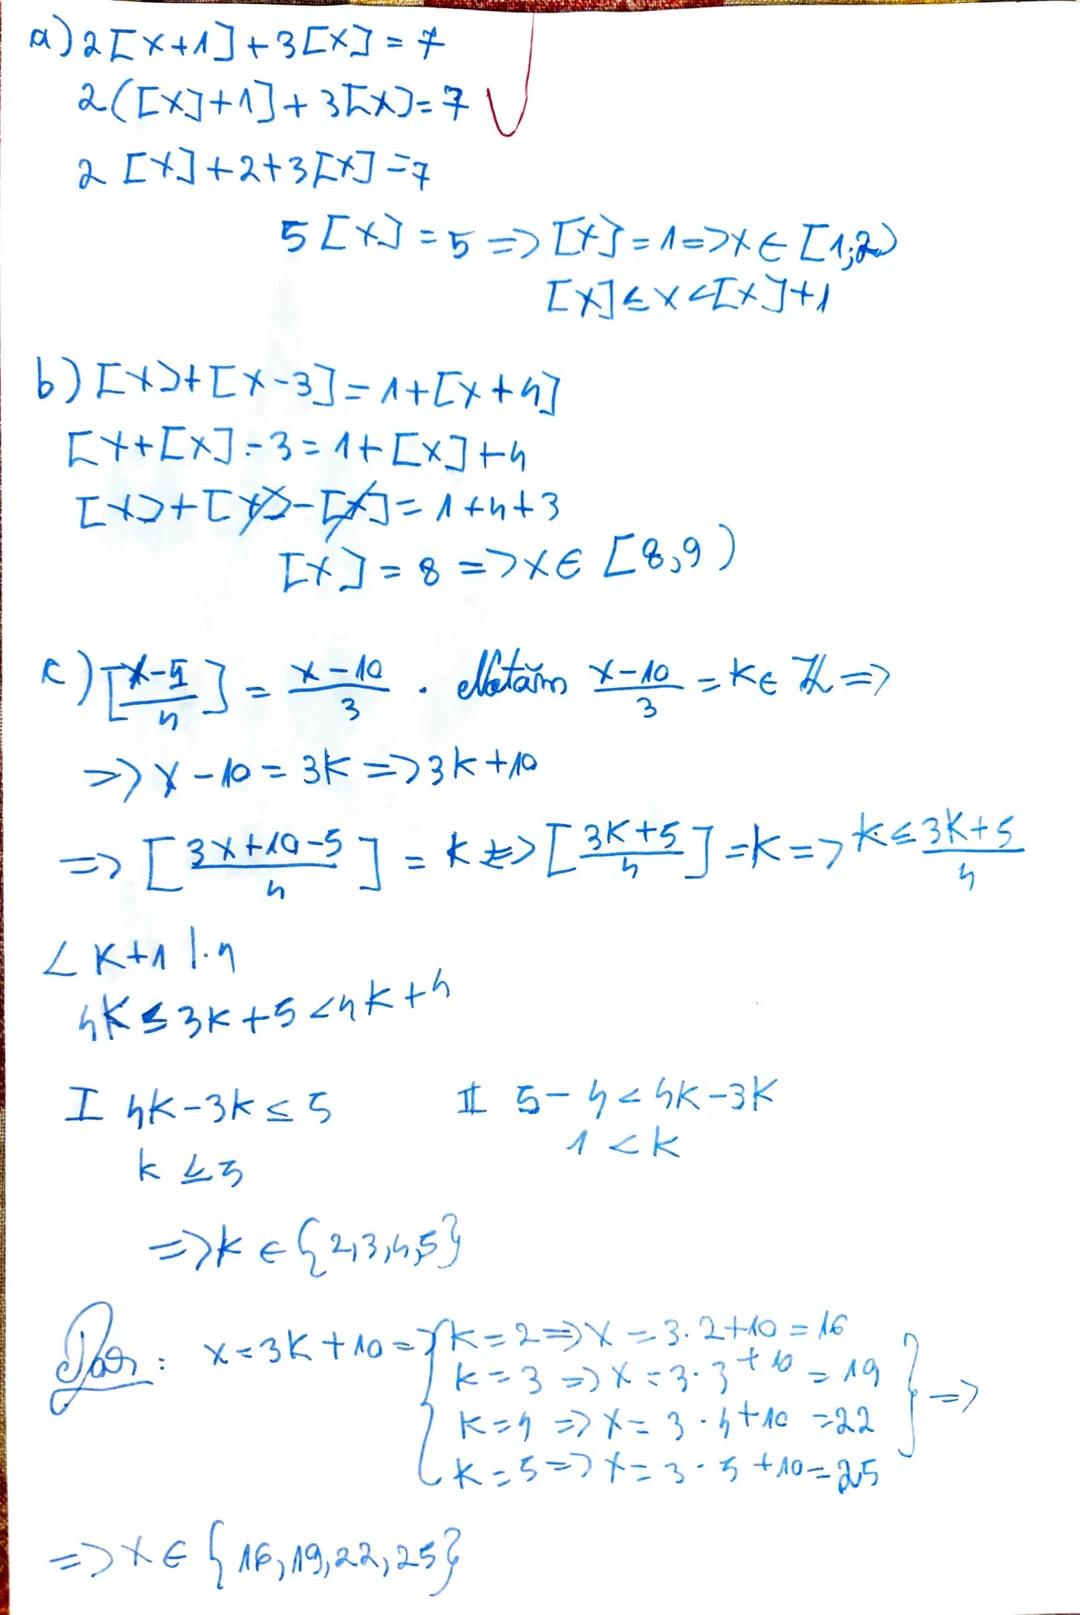 a) 2[x+1]+3[x]=7
2([x]+1]+3[x]=7
2[x]+2+3[x]=7
5[x]=5=>[x]=1=>x∈[1;2)
[x]≤x<[x]+1
b) [x]+[x-3]=1+[x+4]
[x+[x]-3=1+[x]+4
[x]+[x]-[x]=1+4+3
[x]=8=>x∈[8,9)
c) [x-5/4]=x-10/3. Notăm x-10/3=k∈ℤ=>
=>x-10=3k=>3k+10
=>[3x+10-5/4]=k=>[3k+5/4]=k=>k≤3k+5/4
<k+1 |·4
4k≤3k+5<4k+4
I 4k-3k≤5 II 5-4<4k-3k
k≤5 1<k
=>k∈{2,3,4,5}
Dar: x=3k+10=>{k=2=>x=3·2+10=16
k=3=>x=3·3+10=19
k=4=>x=3·4+10=22
k=5=>x=3·5+10=25}=>
=>x∈{16,19,22,25}